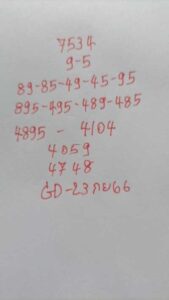 7534
9-5
89-85-49-45-95
895-495-489-485
4895 - 4104
4059
4748
GD-23กย66